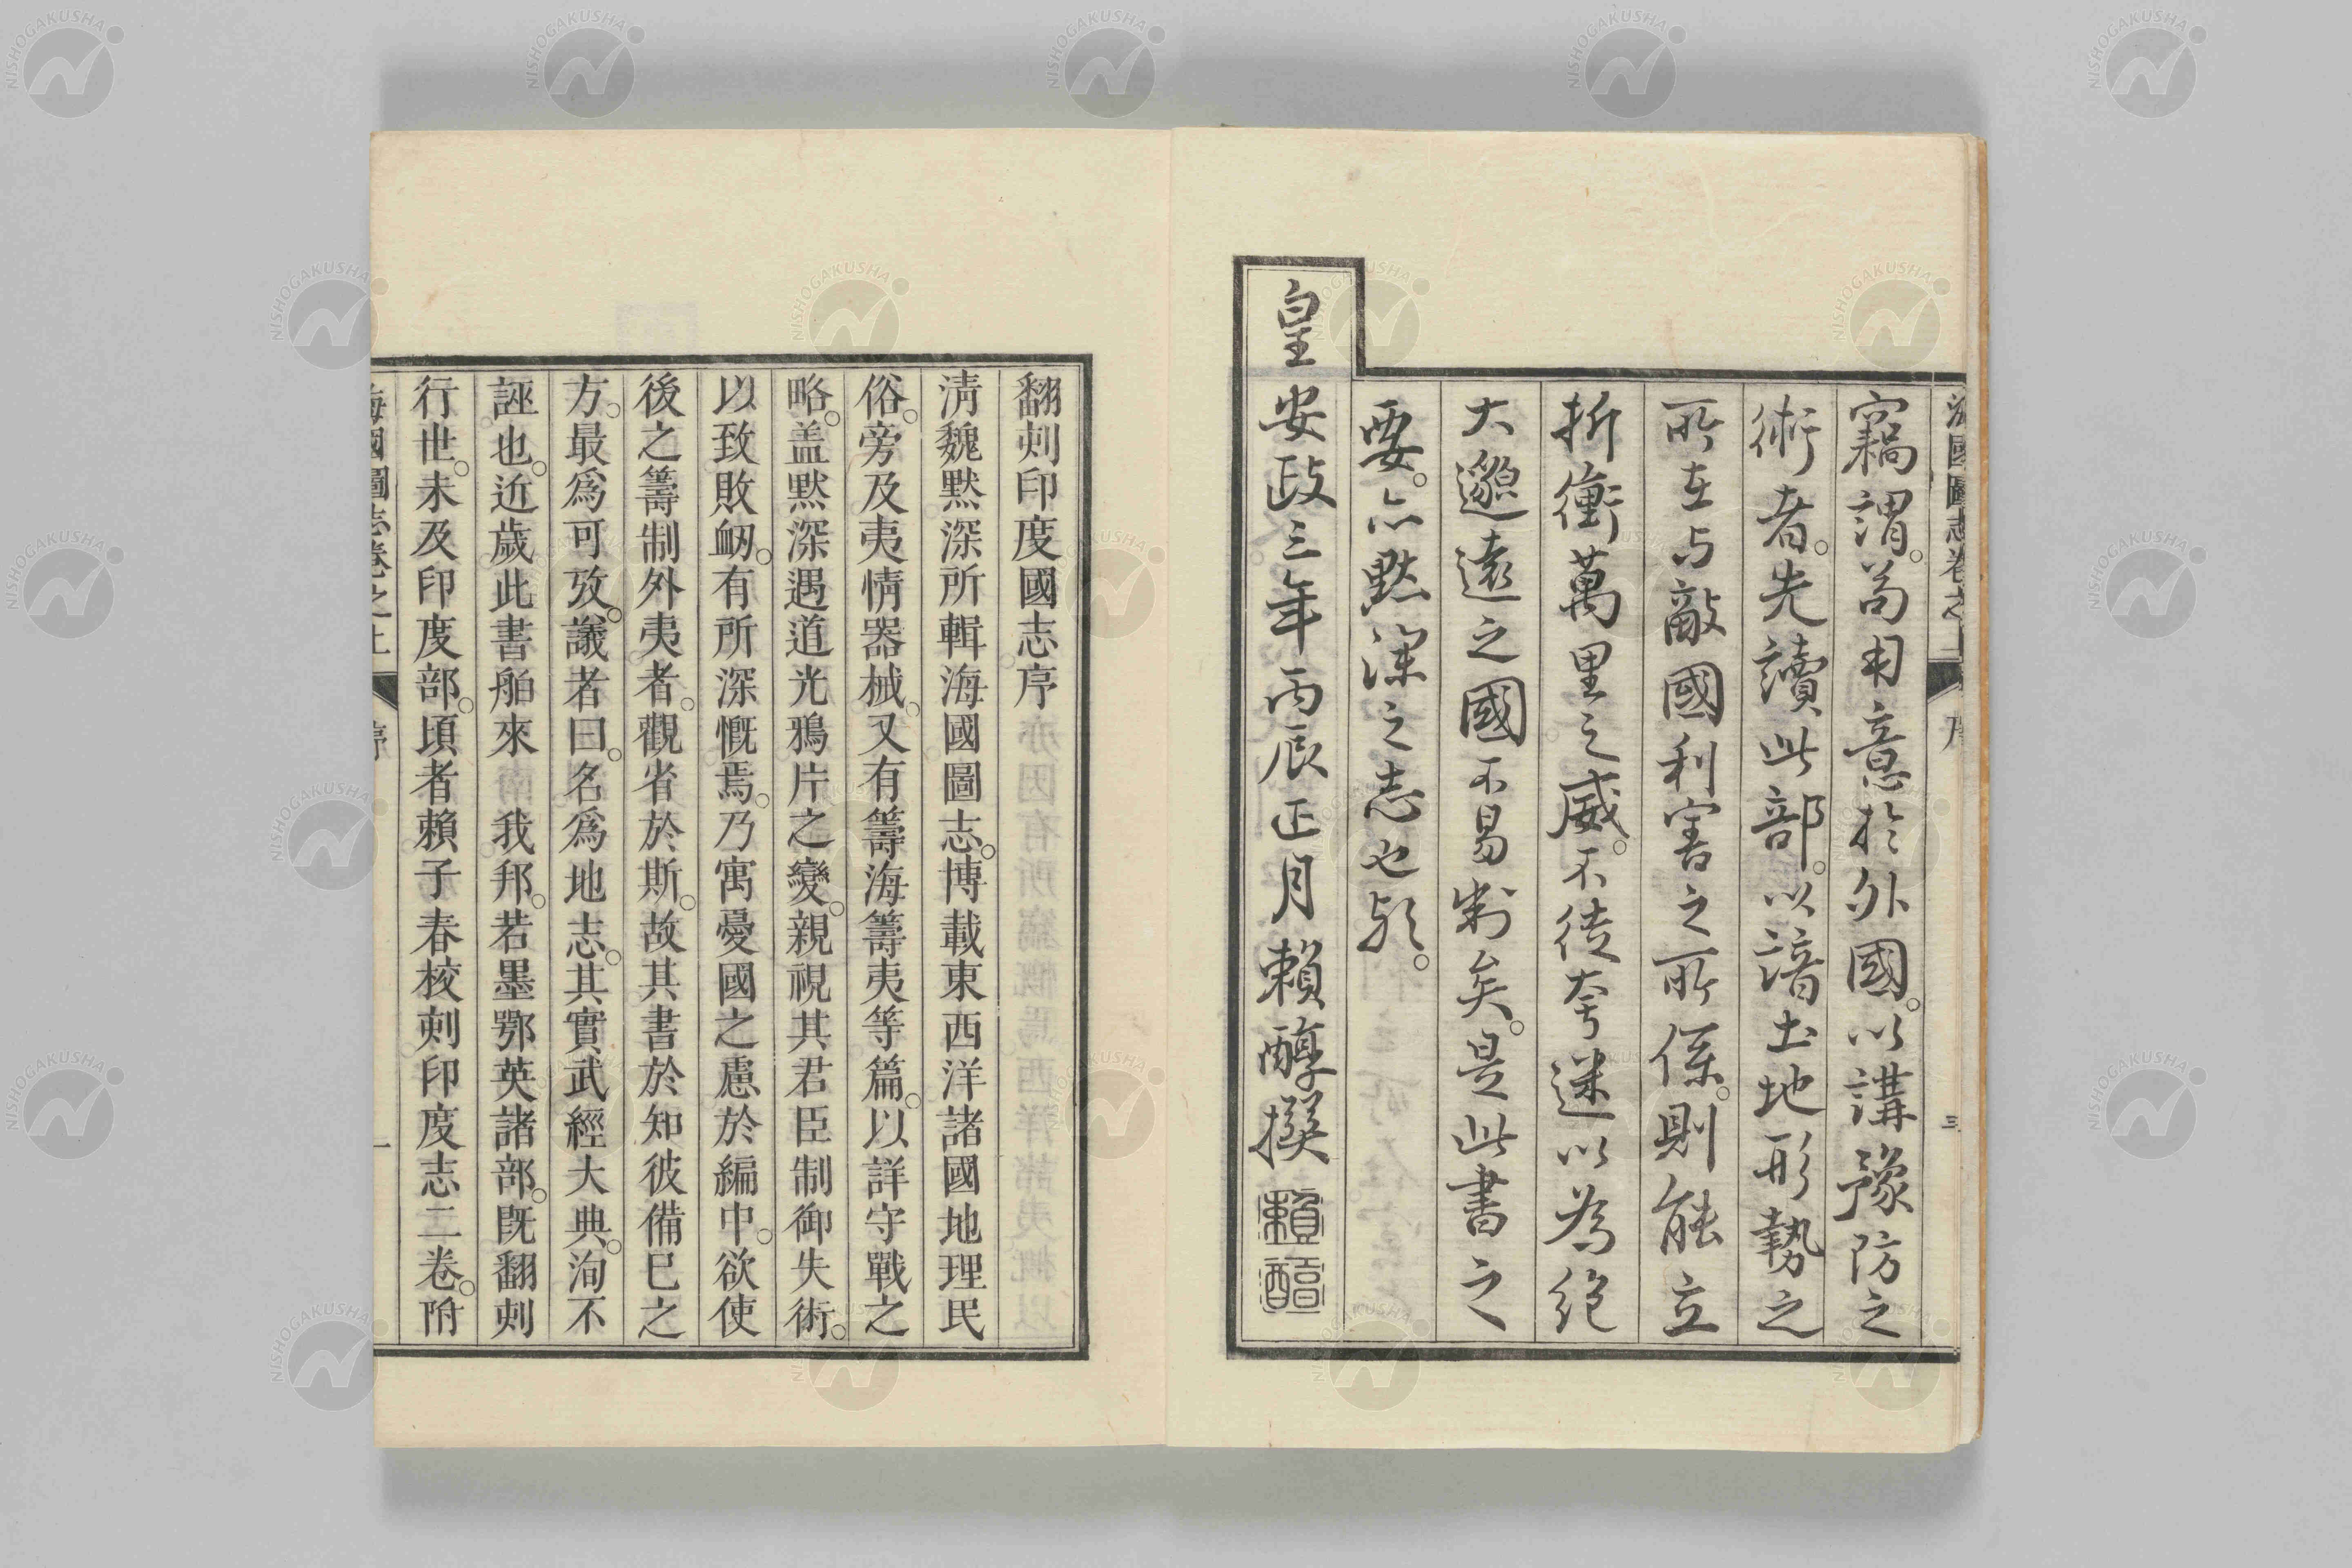 海國圖志卷之上 序 三
竊謂。苟用意於外國。以講豫防之
術者。先讀此部。以諳土地形勢之
所在与敵國利害之所係。則能立
折衝萬里之威。不徒夸遂以為絶
大邈遠之國不易制矣。是此書之
要。亦默深之志也歟。
皇安政三年丙辰正月賴醇撰 賴醇
翻刻印度國志序
淸魏默深所輯海國圖志。博載東西洋諸國地理民
俗。旁及夷情器械。又有籌海籌夷等篇。以詳守戰之
略。盖默深遇道光鴉片之變。親視其君臣制御失術。
以致敗衂。有所深慨焉。乃寓憂國之慮於編中。欲使
後之籌制外夷者。觀省於斯。故其書於知彼備巳之
方。最爲可攷。議者曰。名爲地志。其實武經大典。洵不
誣也。近歲此書舶來 我邦。若墨鄂英諸部。旣翻刻
行世。未及印度部。頃者賴子春校刻印度志二卷。附
海國圖志卷之上 序 一
NISHOGAKUSHA